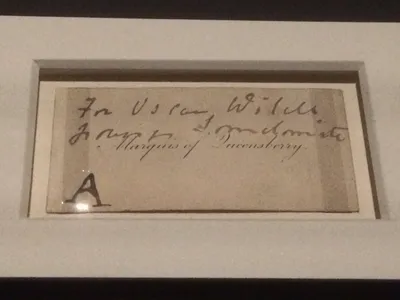 For Oscar Wilde
Somdomite
Marquis of Queensberry.
A